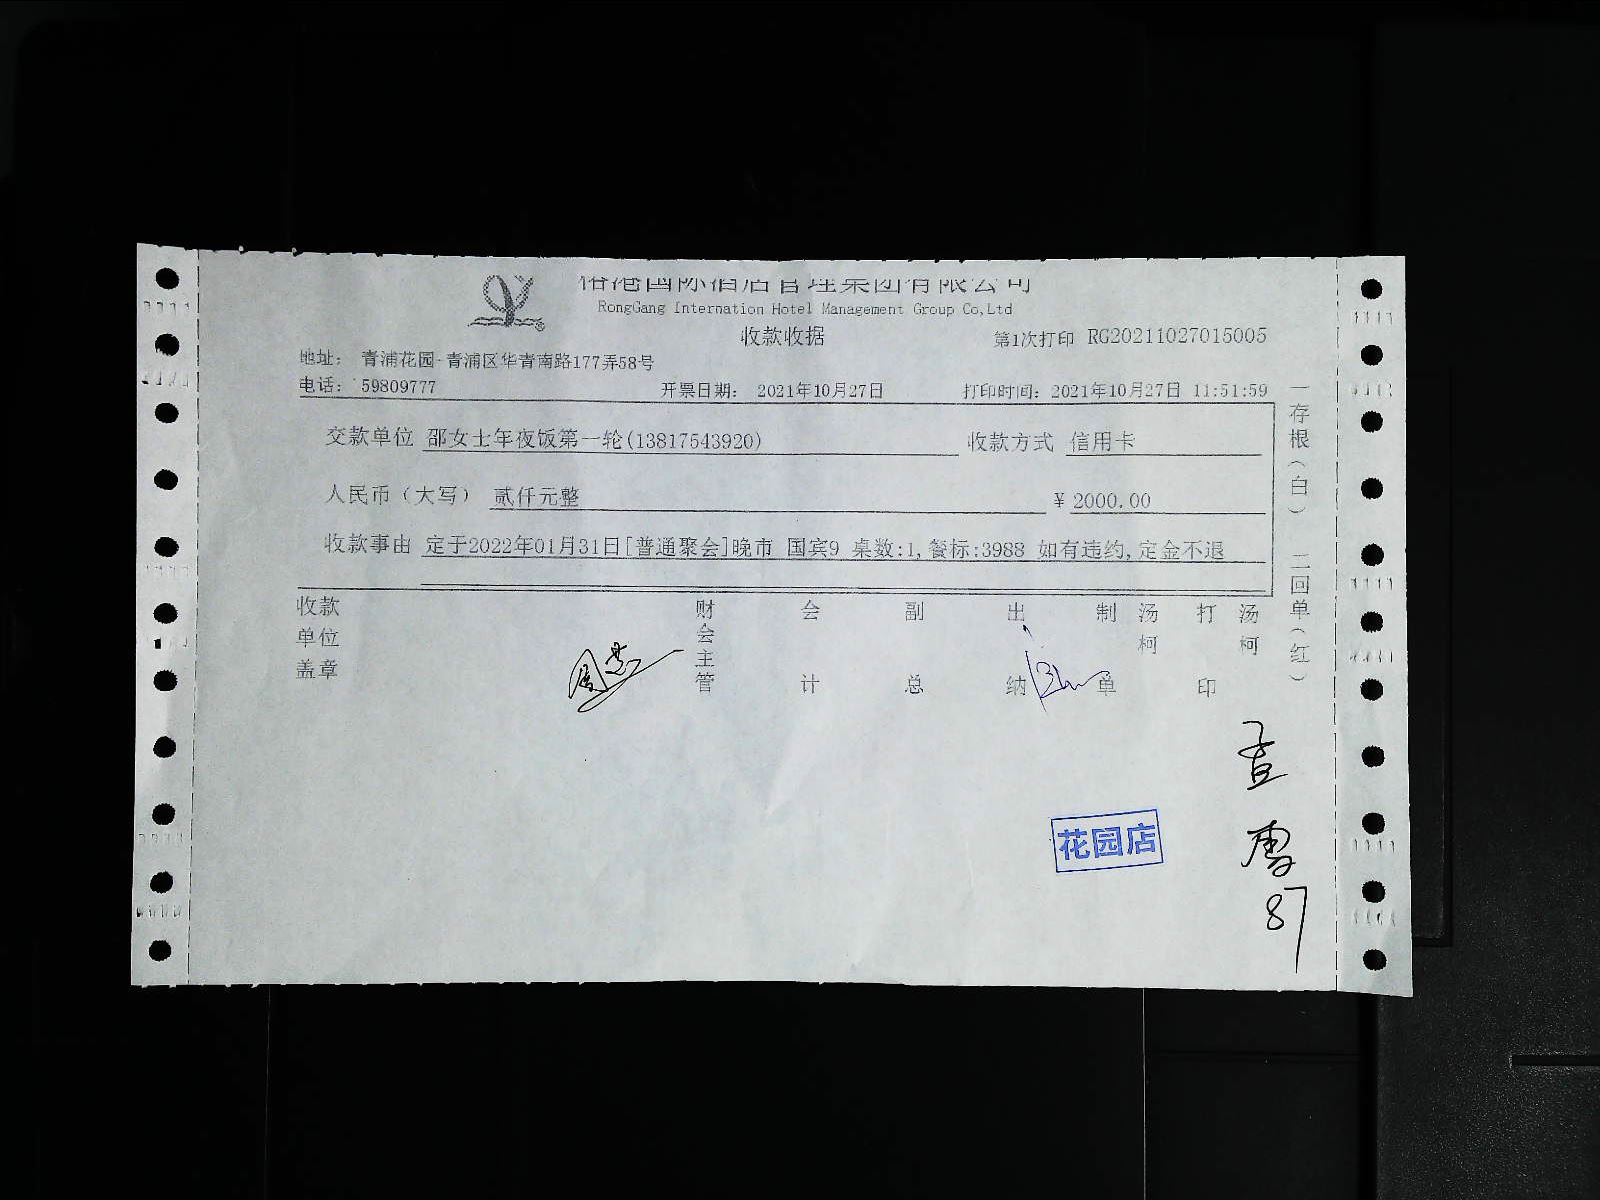 榕港国际酒店管理集团有限公司
RongGang Internation Hotel Management Group Co,Ltd
收款收据
第1次打印 RG20211027015005
地址: 青浦花园-青浦区华青南路177弄58号
电话: 59809777 开票日期: 2021年10月27日 打印时间: 2021年10月27日 11:51:59
交款单位 邵女士年夜饭第一轮(13817543920) 收款方式 信用卡
人民币（大写） 贰仟元整 ¥ 2000.00
收款事由 定于2022年01月31日[普通聚会]晚市 国宾9 桌数:1,餐标:3988 如有违约,定金不退
收款单位盖章 财会主管 会计 副总 出纳 制单 汤柯 打印 汤柯
一存根（白） 二回单（红）
花园店
87